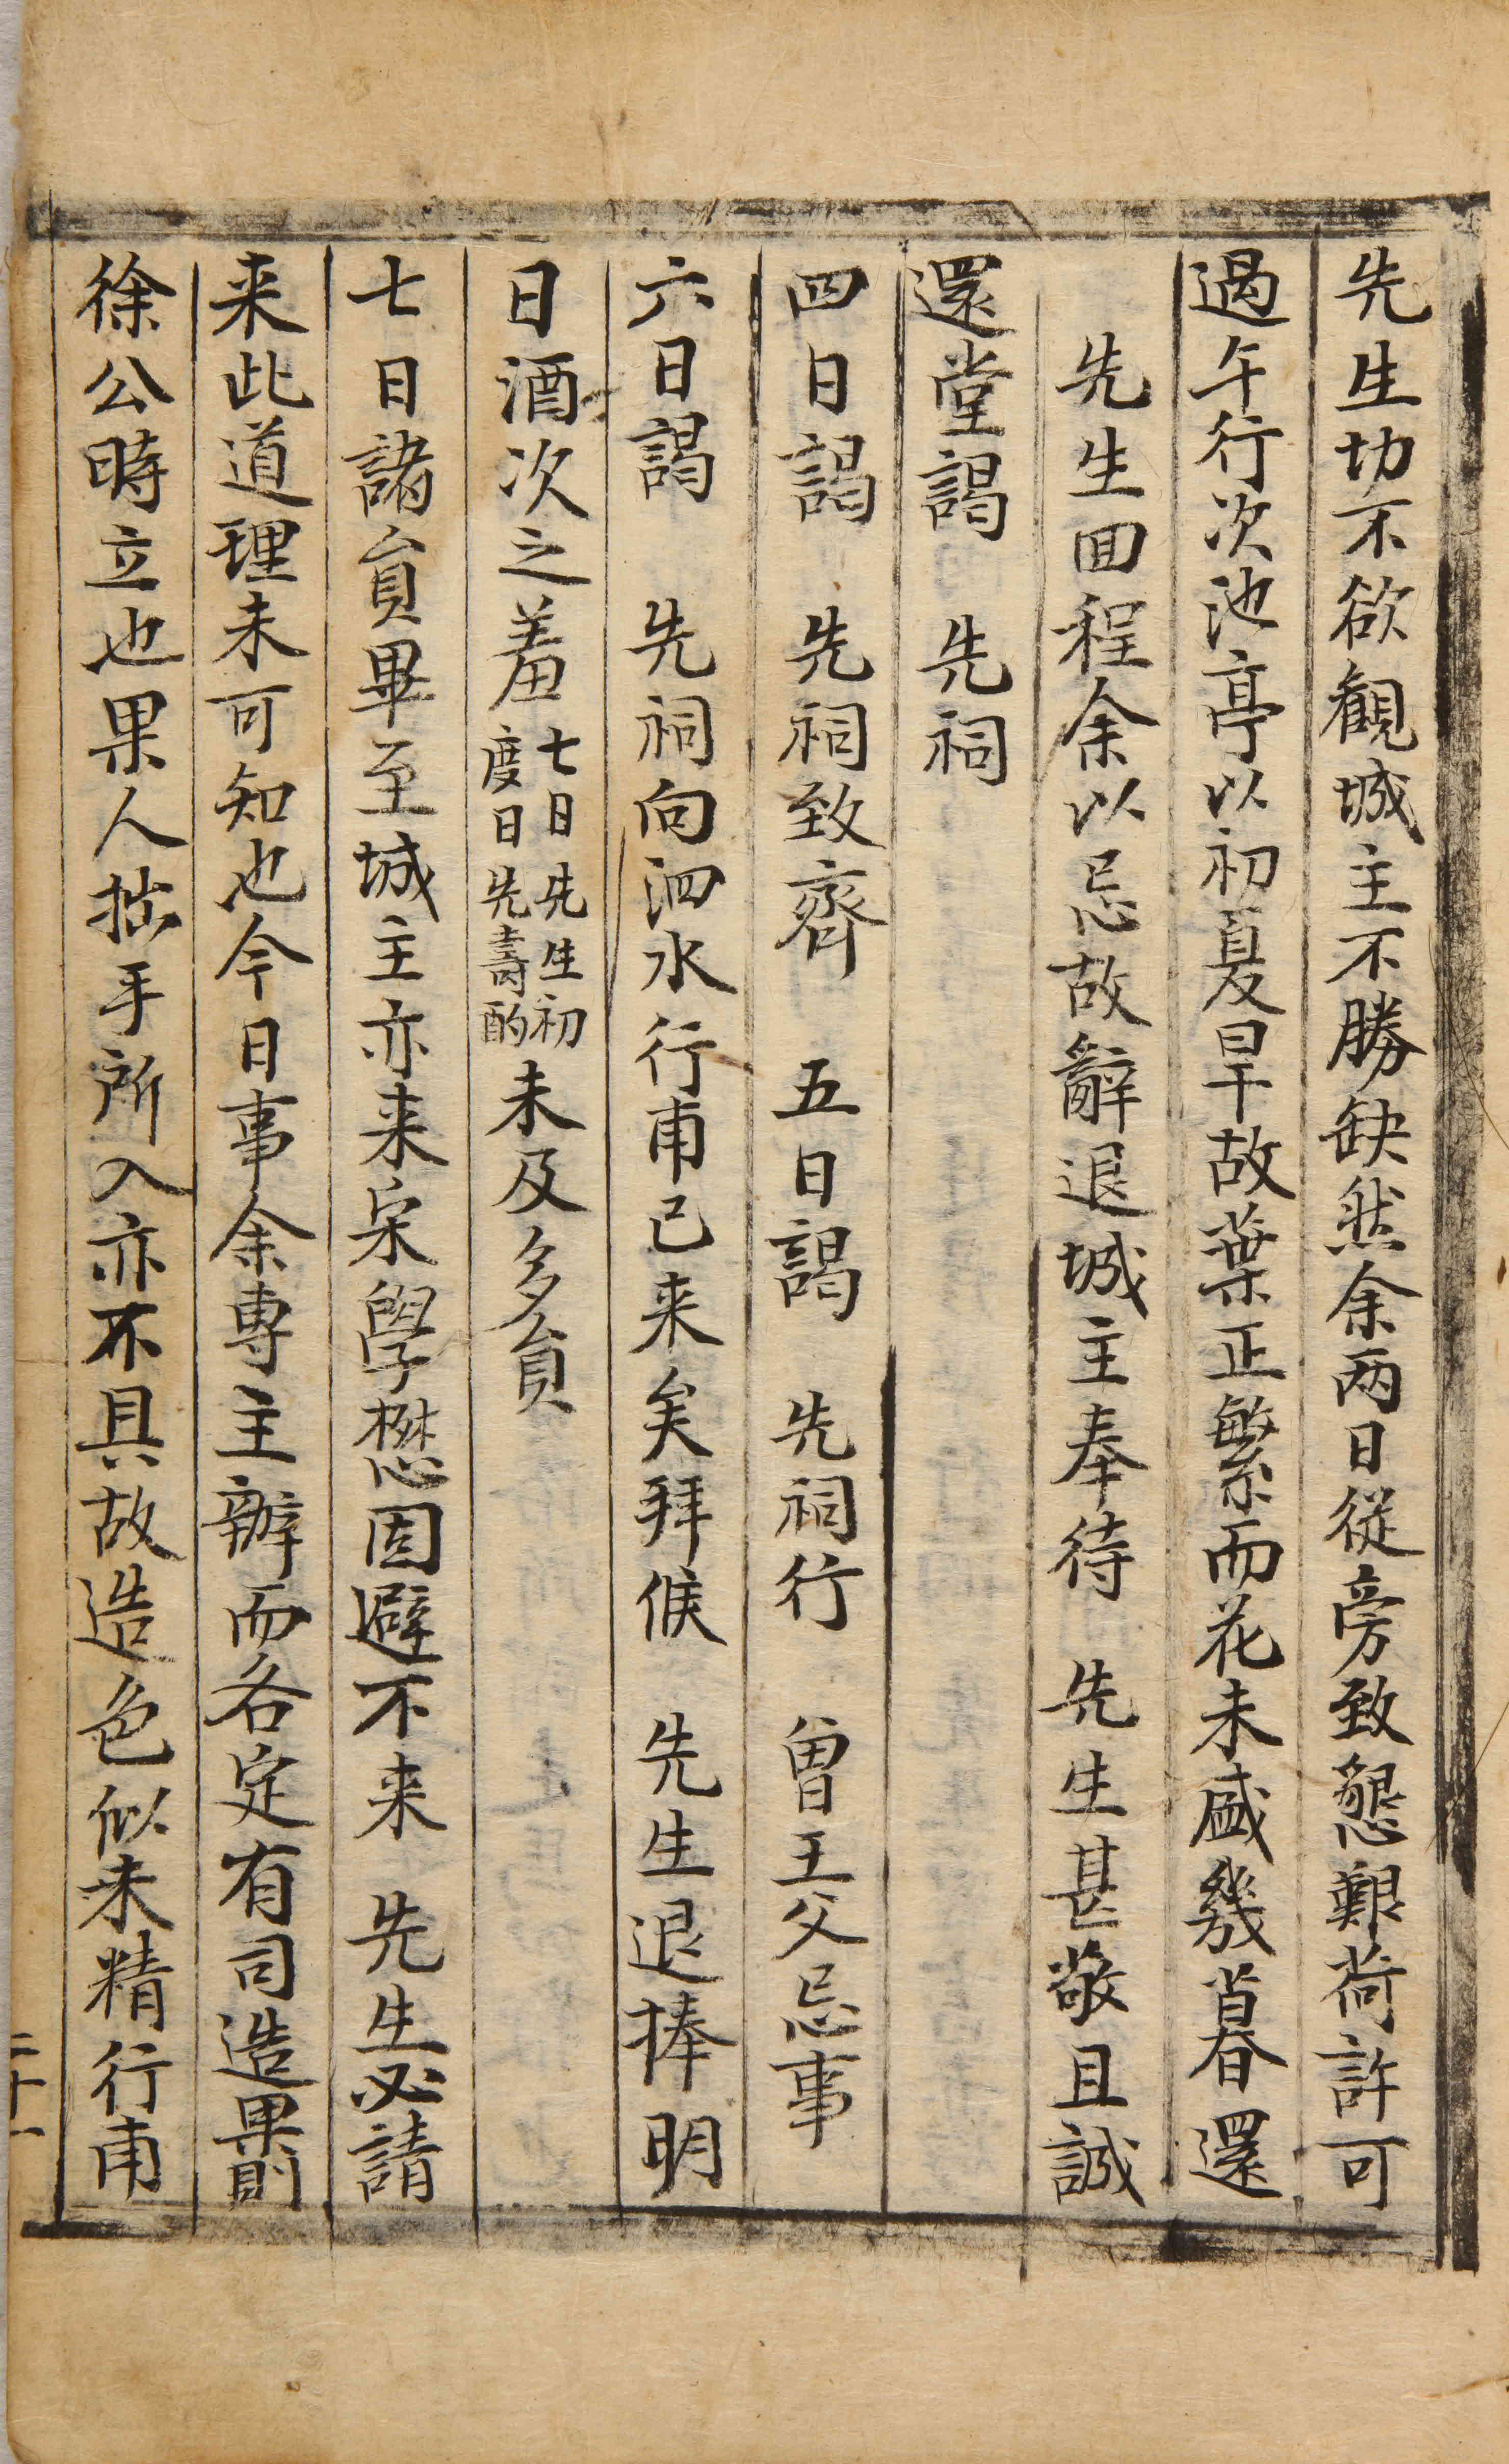 先生切不欲觀城主不勝缺然余两日從旁致懇艱荷許可
過午行次池亭以初夏旱干故葉正繁而花未盛幾暮還
先生回程余以忌故辭退城主奉待 先生甚敬且誠
還堂謁 先祠
四日謁 先祠致齊 五日謁 先祠行 曽王父忌事
六日謁 先祠向泗水行甫已来矣拜候 先生退捧明
日酒次之羞七日先生初度日先壽酌未及多負
七日諸負畢至城主亦来宋學懋固避不来 先生必請
来此道理未可知也今日事余專主辦而各定有司造果則
徐公時立也果人拙手所入亦不具故造色似未精行甫
二十一